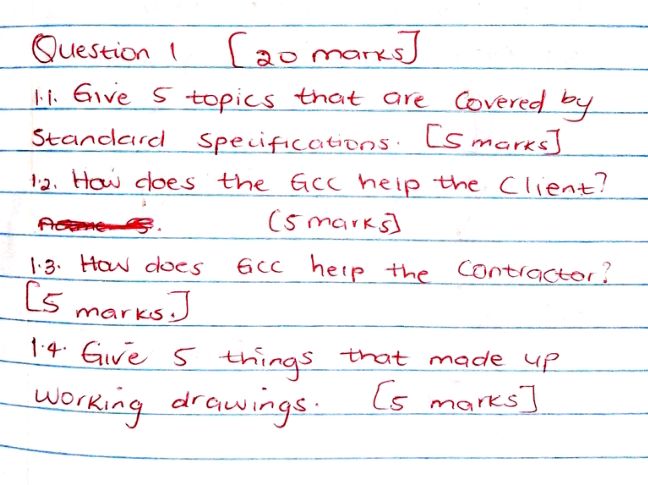 Question 1 [20 marks]
1.1. Give 5 topics that are Covered by
Standard Specifications. [5 marks]
1.2. How does the GCC help the Client?
[5 marks]
1.3. How does GCC help the Contractor?
[5 marks.]
1.4. Give 5 things that made up
working drawings. [5 marks]